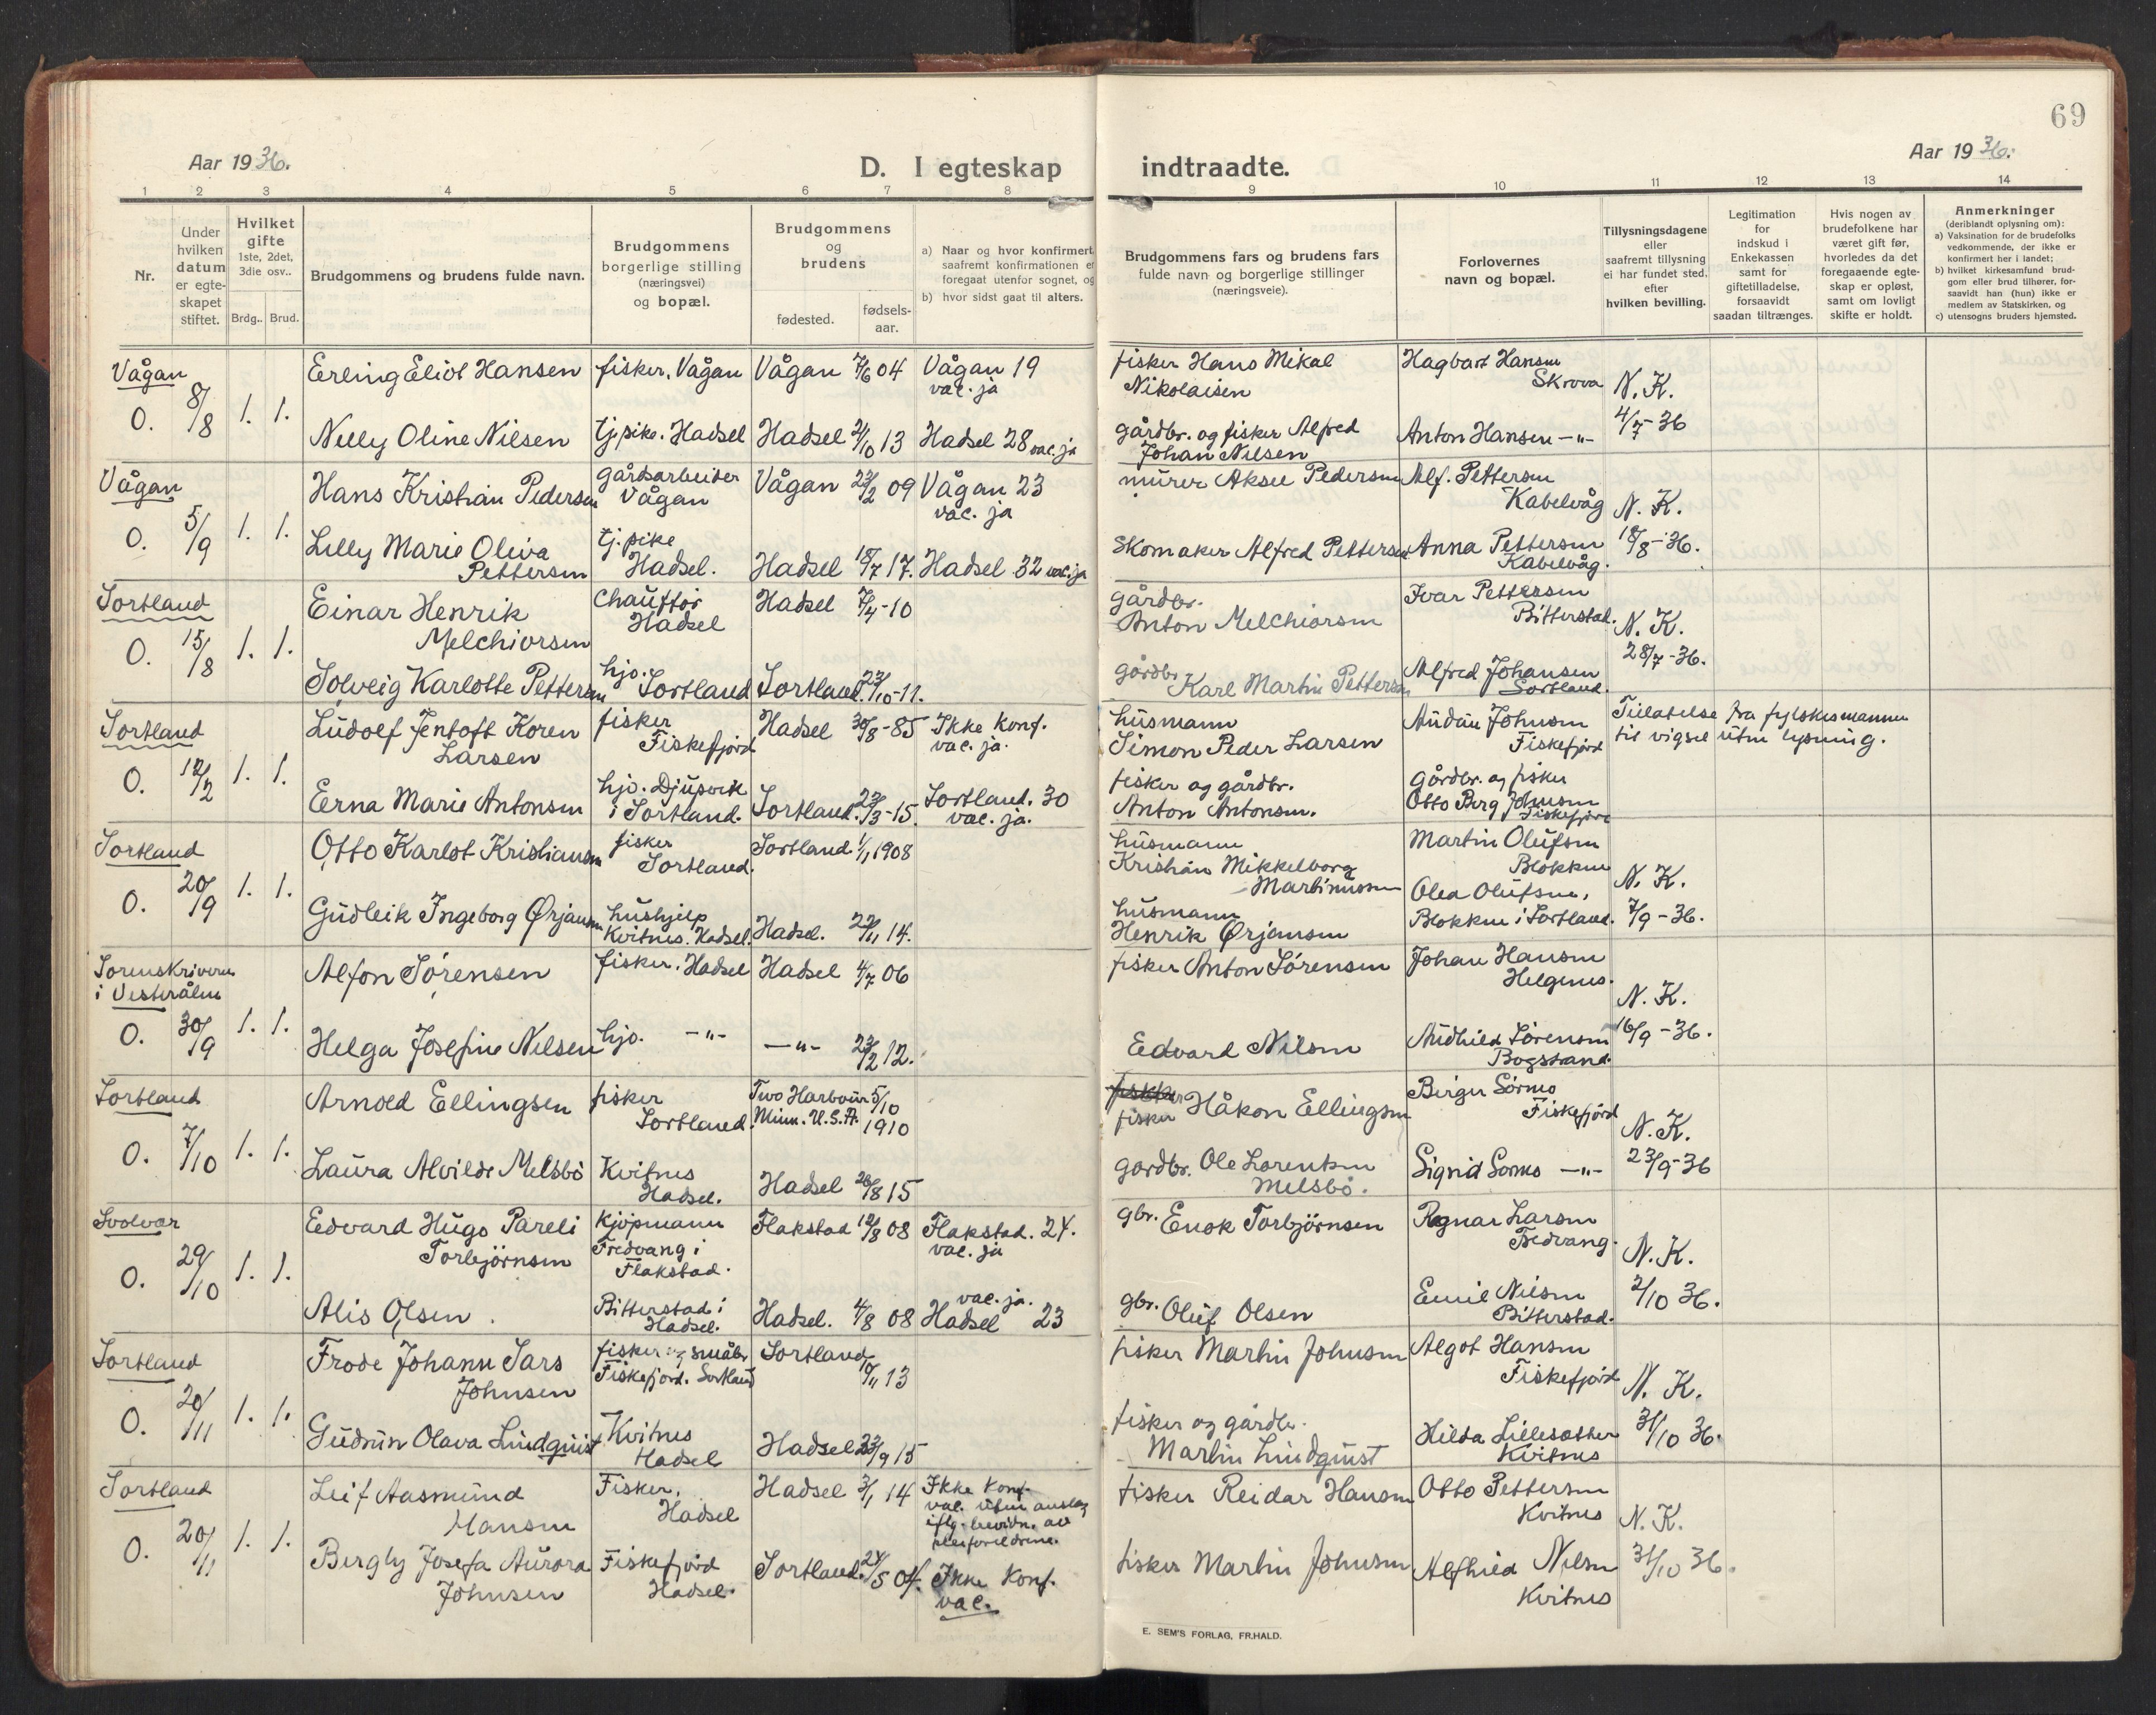 69
Aar 1936.
D. I egteskap
indtraadte.
Aar 1936.
1 2 3 4 5 6 7 8 9 10 11 12 13 14
Nr.
Under
hvilken
datum
er egte-
skapet
stiftet.
Hvilket
gifte
1ste, 2det,
3die osv..
Brdg.. Brud.
Brudgommens og brudens fulde navn.
Brudgommens
borgerlige stilling
(næringsvei)
og bopæl.
Brudgommens
og
brudens
fødested.
fødsels-
aar.
a) Naar og hvor konfirmert
saafremt konfirmationen er
foregaat utenfor sognet, og
b) hvor sidst gaat til alters.
Brudgommens fars og brudens fars
fulde navn og borgerlige stillinger
(næringsveie).
Forlovernes
navn og bopæl.
Tillysningsdagene
eller
saafremt tillysning
ei har fundet sted.
efter
hvilken bevilling.
Legitimation
for
indskud i
Enkekassen
samt for
giftetilladelse,
forsaavidt
saadan tiltrænges.
Hvis nogen av
brudefolkene har
været gift før,
hvorledes da det
foregaaende egte-
skap er opløst,
samt om lovligt
skifte er holdt.
Anmerkninger
(deriblandt oplysning om):
a) Vaksination for de brudefolks
vedkommende, der ikke er
konfirmert her i landet;
b) hvilket kirkesamfund brud-
gom eller brud tilhører, for-
saavidt han (hun) ikke er
medlem av Statskirken, og
c) utensogns bruders hjemsted.
Vågan
O. 8/8 1. 1.
Erling Eliot Hansen fisker, Vågan Vågan 7/6 04 Vågan 19
vac. ja
fisker Hans Mikal
Nikolaisen
Hagbart Hansen
Skrova
N. K.
4/7-36
Nelly Oline Nilsen tj.pike. Hadsel Hadsel 2/10 13 Hadsel 28 vac. ja
gårdbr. og fisker Alfred
Johan Nilsen
Anton Hansen -"-
Vågan
O. 5/9 1. 1.
Hans Kristian Pedersen gårdsarbeider
Vågan
Vågan 23/2 09 Vågan 23
vac. ja
murer Aksel Pedersen
Alf. Pettersen
Kabelvåg
N. K.
18/8-36.
Lilly Marie Oliva
Pettersen
tj.pike
Hadsel.
Hadsel 18/7 17. Hadsel 32 vac. ja
Skomaker Alfred Pettersen
Anna Pettersen
Kabelvåg.
Sortland
O. 15/8 1. 1.
Einar Henrik
Melchiorsen
Chauffør
Hadsel
Hadsel 7/4-10
gårdbr.
Anton Melchiorsen
Ivar Pettersen
Bitterstad.
N. K.
28/7-36.
Solveig Karlotte Pettersen hjv.
Sortland
Sortland. 23/10-11.
gårdbr.
Karl Martin Pettersen
Alfred Johansen
Sortland.
Sortland
O. 12/2 1. 1.
Ludolf Jentoft Koren
Larsen
fisker
Fiskefjord
Hadsel 30/8-85 Ikke konf.
vac. ja.
husmann
Simon Peder Larsen
Audun Johnsen
Fiskefjord
Tillatelse fra fylkesmannen
til vigsel uten lysning.
Erna Marie Antonsen hjv. Djupvik
i Sortland.
Sortland. 23/3-15. Sortland. 30
vac. ja.
fisker og gårdbr.
Anton Antonsen.
Gårdbr. og fisker
Otto Berg Johnsen
Fiskefjord
Sortland
O. 20/9 1. 1.
Otto Karlot Kristiansen fisker
Sortland.
Sortland. 1/1 1908
husmann
Kristian Mikkelborg
Martinussen
Martin Olufsen
Blokken
N. K.
7/9-36.
Gudleik Ingeborg Ørjansen hushjelp
Kvitnes. Hadsel.
Hadsel. 22/11 14.
husmann
Henrik Ørjansen
Olea Olufsen,
Blokken i Sortland.
Sorenskriveren
i Vesterålen
O. 30/9 1. 1.
Alfon Sørensen fisker. Hadsel Hadsel 4/7 06
fisker Anton Sørensen
Johan Hansen
Helgenes.
N. K.
16/9-36.
Helga Josefine Nilsen hjv. -"- -"- 23/2 12.
Edvard Nilsen
Audhild Sørensen
Bogstrand.
Sortland
O. 7/10 1. 1.
Arnold Ellingsen fisker
Sortland.
Two Harbour
Minn. U.S.A.
5/10
1910
fisker
fisker Håkon Ellingsen
Birger Sørmo
Fiskefjord
N. K.
23/9-36
Laura Alvilde Melsbö Kvitnes
Hadsel.
Hadsel 28/8 15
gardbr. Ole Lorentsen
Melsbö.
Sigrid Sørmo -"-
Svolvær
O. 29/10 1. 1.
Edvard Hugo Pareli
Torbjörnsen
Kjøpmann
Fredvang i
Flakstad.
Flakstad 12/8 08 Flakstad. 24.
vac. ja
gbr. Enok Torbjörnsen
Ragnar Larsen
Fredvang.
N. K.
2/10 36.
Alis Olsen. Bitterstad i
Hadsel.
Hadsel. 4/8 08 vac. ja.
Hadsel 23
gbr. Oluf Olsen
Emil Nilsen
Bitterstad.
Sortland
O. 20/11 1. 1.
Frode Johann Sars
Johnsen
fisker og småbr.
Fiskefjord. Sortland
Sortland
9/11 13
fisker Martin Johnsen
Algot Hansen
Fiskefjord
N. K.
31/10 36.
Gudrun Olava Lindquist Kvitnes
Hadsel
Hadsel 23/9 15
fisker og gårdbr.
Martin Lindquist
Hilda Lillesæther
Kvitnes
Sortland
O. 20/11 1. 1.
Leif Aasmund
Hansen
Fisker.
Hadsel
Hadsel 3/1 14 Ikke konf.
vac. uten anslag
iflg. bevidn. av
pleieforeldrene.
fisker Reidar Hansen
Otto Pettersen
Kvitnes
N. K.
31/10 36.
Bergly Josefa Aurora
Johnsen
Fiskefjord
Hadsel.
Sortland. 24/5 04. Ikke konf.
vac.
fisker Martin Johnsen
Alfhild Nilsen
Kvitnes
E. SEM'S FORLAG, FR.HALD.